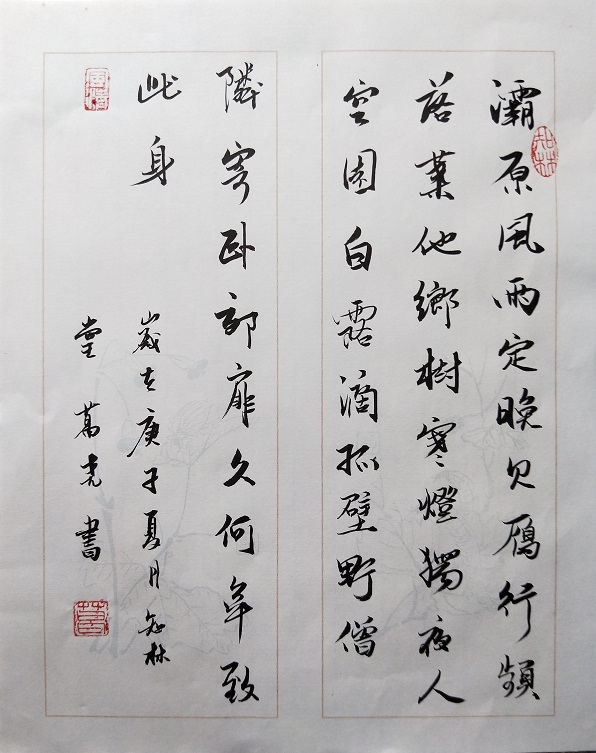 灞原風雨定晚見鴈行頻
落葉他鄉樹寒燈獨夜人
空園白露滴孤壁野僧
隣寄臥郊扉久何年致
此身
歲在庚子夏月知林
堂葛書
知林